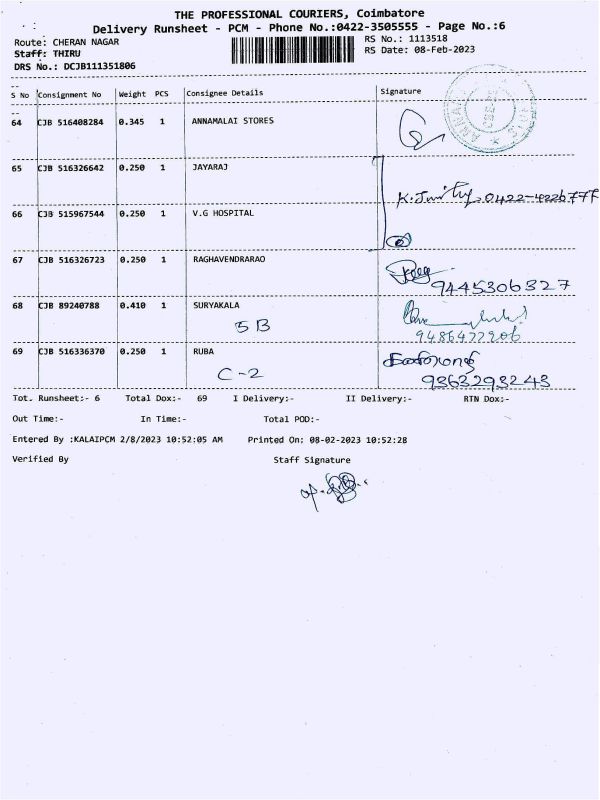 THE PROFESSIONAL COURIERS, Coimbatore
Delivery Runsheet - PCM - Phone No.:0422-3505555 - Page No.:6
Route: CHERAN NAGAR
RS No.: 1113518
Staff: THIRU
RS Date: 08-Feb-2023
DRS No.: DCJB111351806
S No Consignment No Weight PCS Consignee Details Signature
64 CJB 516408284 0.345 1 ANNAMALAI STORES
65 CJB 516326642 0.250 1 JAYARAJ
0422-4226777
66 CJB 515967544 0.250 1 V.G HOSPITAL
67 CJB 516326723 0.250 1 RAGHAVENDRARAO
9445306327
68 CJB 89240788 0.410 1 SURYAKALA
5B
9486472206
69 CJB 516336370 0.250 1 RUBA
C-2
9363293243
Tot. Runsheet:- 6 Total Dox:- 69 I Delivery:- II Delivery:- RTN Dox:-
Out Time:- In Time:- Total POD:-
Entered By :KALAIPCM 2/8/2023 10:52:05 AM Printed On: 08-02-2023 10:52:28
Verified By Staff Signature